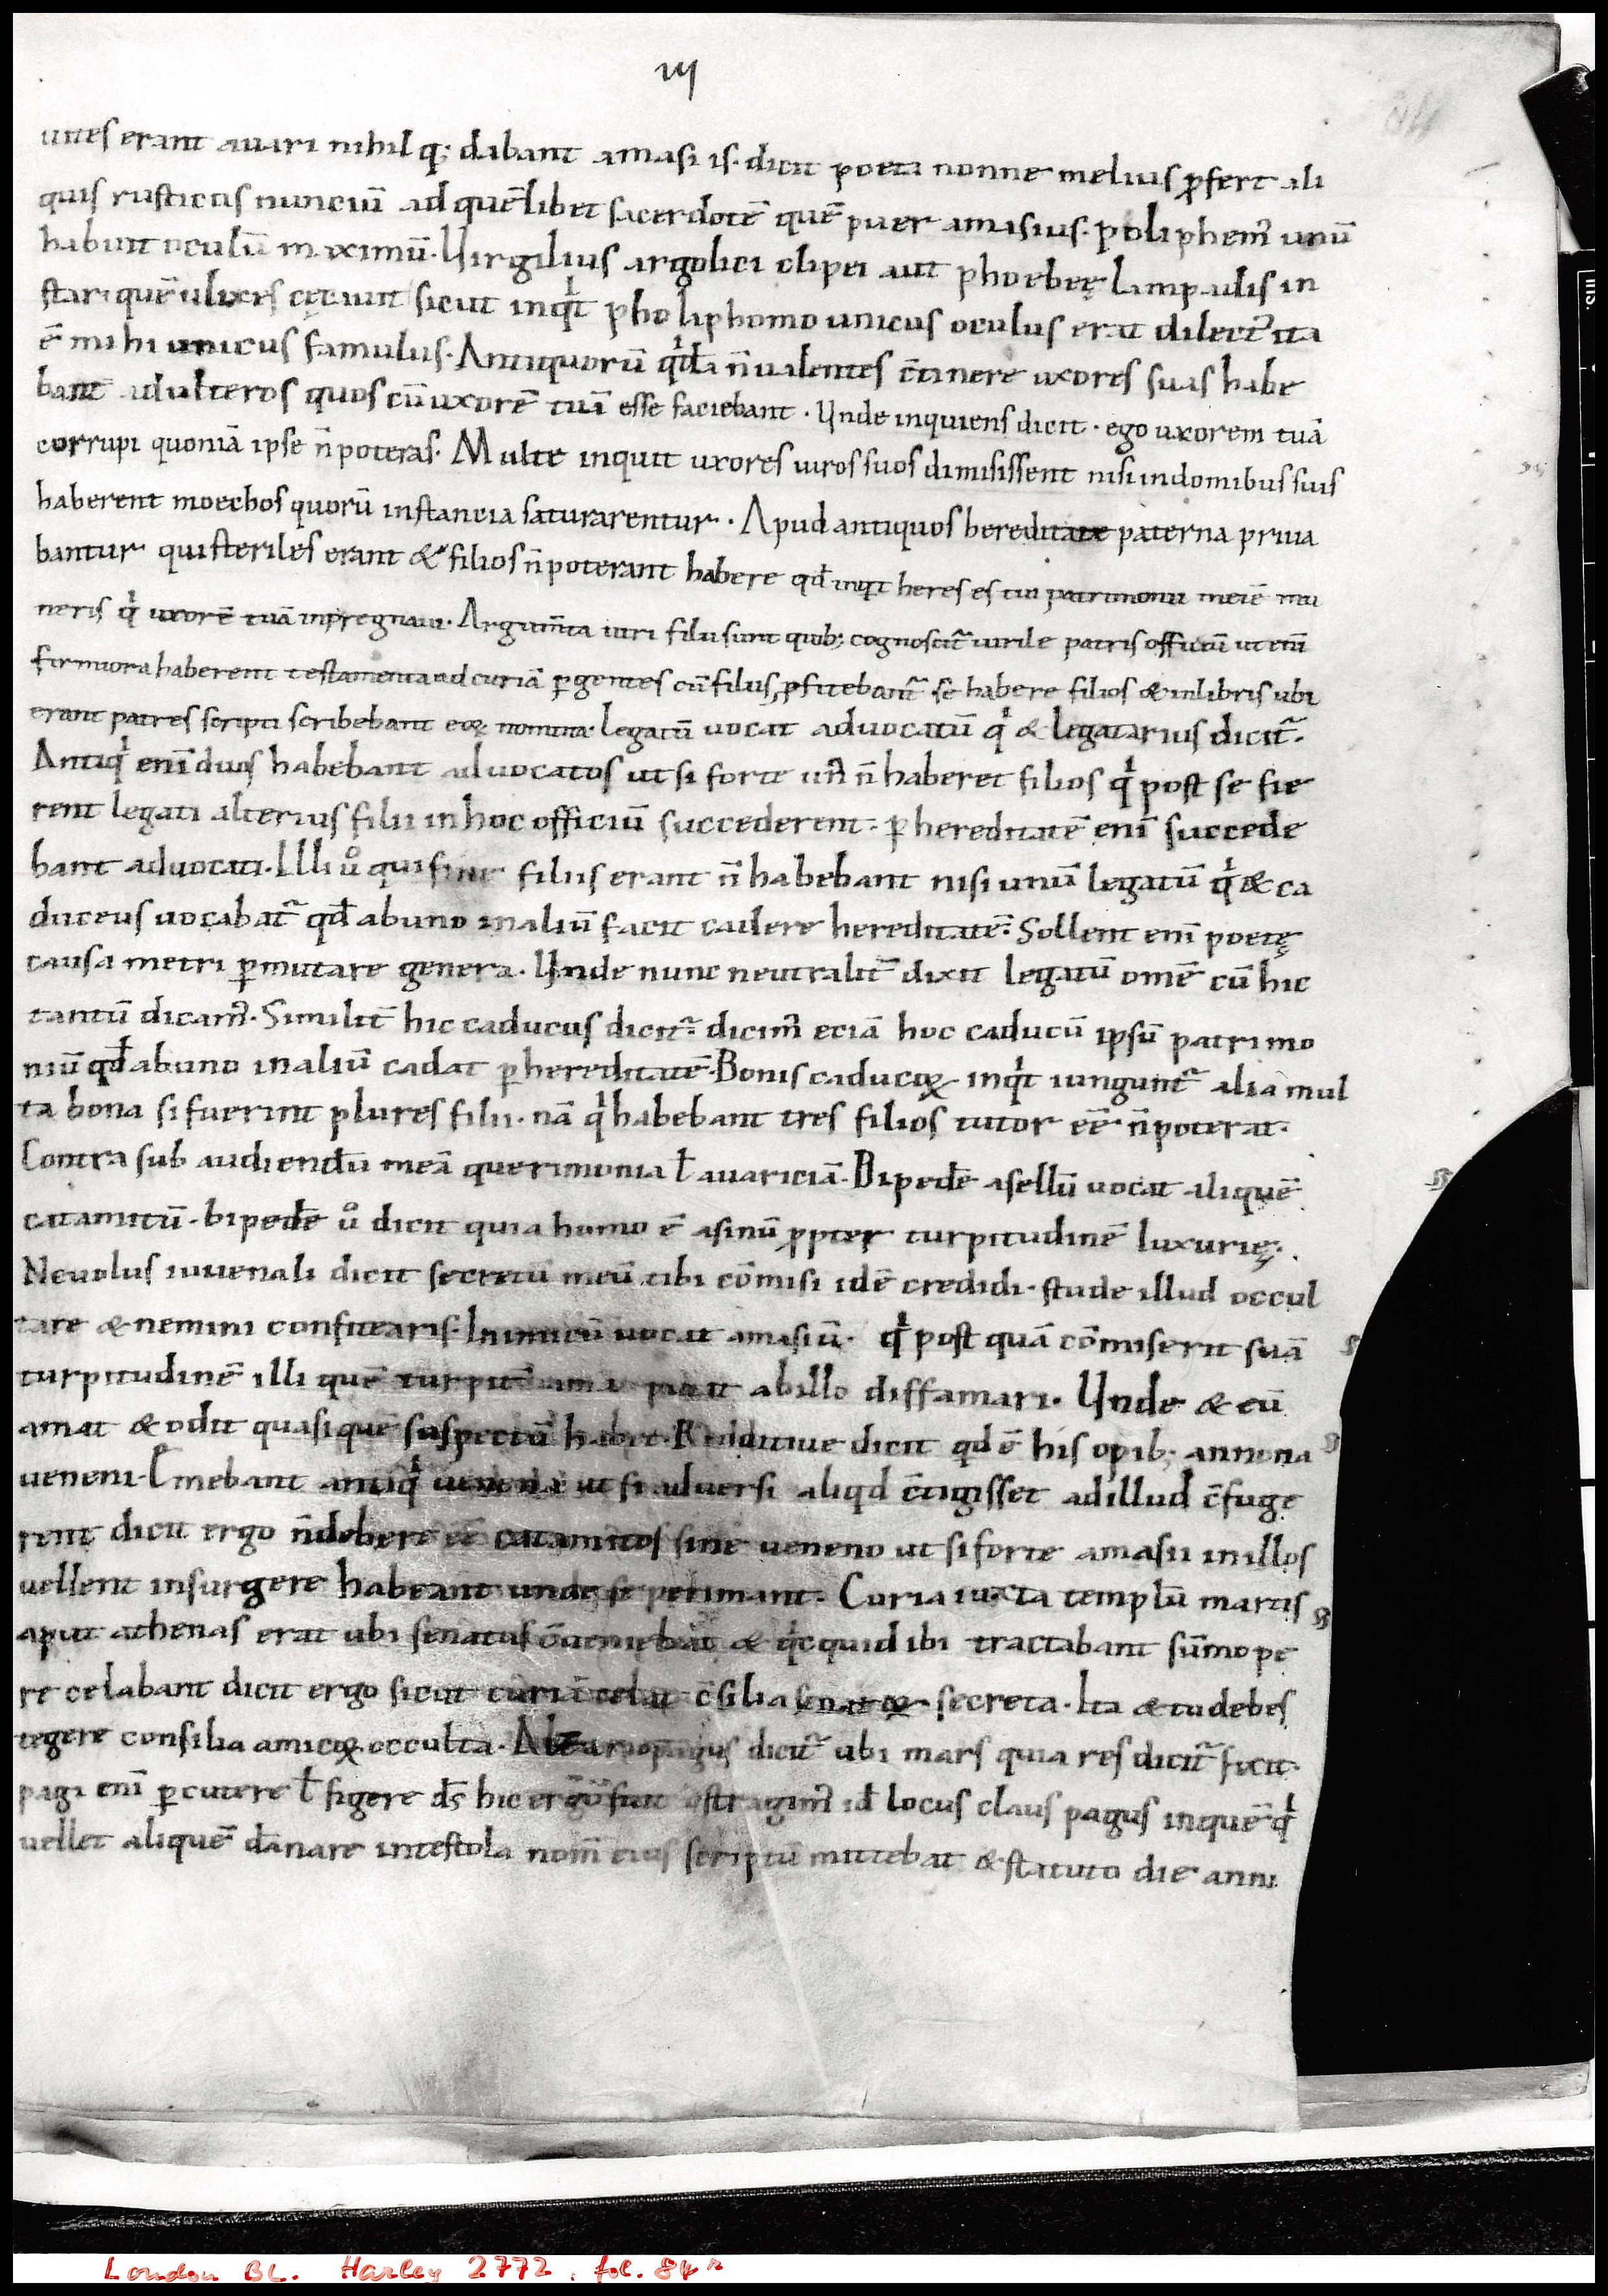 ııȷ
uites erant auari nihil q; dabant amasi is. dicit poeta nonne melius ꝓfert ali
quis rusticus nunciū ad quēlibet sacerdotē quē puer amasius. poliphem᷒ unū
habuit oculū maximū. Uirgilius argolici clipei aut phoebeę lampadis in
star quē ulixes cęcauit sicut inqͥt pholiphomo unicus oculus erat dilect᷒ ita
ē mihi unicus famulus. Antiquorū qͥdā n̄ ualentes c̄tinere uxores suas habe
bant adulteros quos cū uxorē tuā esse faciebant. Unde inquiens dicit. ego uxorem tuā
corrupi quoniā ipse n̄ poteras. Multe inquit uxores uiros suos dimisissent nisi in domibus suis
haberent moechos quorū instancia saturarentur. Apud antiquos hereditate paterna priua
bantur qui steriles erant & filios n̄ poterant habere qd̄ inqt heres es tui patrimonii meiē mu
neris qͥ uxorē tuā inpregnaui. Argum̄ta uiri filii sunt quib; cognoscit᷑ uirile patris officiū ut enī
firmiora haberent testamenta ad curiā ꝑgentes cū filiis ꝓfitebant᷑ se habere filios & in libris ubi
erant patres scripti scribebant eoꝝ nomina. legatū uocat aduocatū qͥ & legatarius dicit᷑.
Antiqͥ enī duos habebant aduocatos ut si forte un᷒ n̄ haberet filios qͥ post se fie
rent legati alterius filii in hoc officiū succederent. ꝑ hereditatē enī succede
bant aduocati. Illi ů qui sine filiis erant n̄ habebant nisi unū legatū qͥ & ca
duceus uocabat᷑ qd̄ ab uno in aliū facit cadere hereditatē. Sollent enī poetę
causa metri ꝑmutare genera. Unde nunc neutralit᷑ dixit legatū omē cū hic
tantū dicam᷒. Similit᷑ hic caducus dicit᷑. dicim᷒ eciā hoc caducū ipsū patrimo
niū qd̄ ab uno in aliū cadat ꝑ hereditatē. Bonis caducoꝝ inqͥt iungunt᷑ alia mul
ta bona si fuerint plures filii. nā qͥ habebant tres filios tutor eē n̄ poterat.
Contra sub audiendū meā querimonia ł auariciā. Bipedē asellū uocat aliquē
catamitū. bipedē ů dicit quia homo ē asinū ꝓpter turpitudinē luxurię.
Neuolus iuuenali dicit secretū meū tibi cōmisi idē credidi. stude illud occul
tare & nemini confitearis. Inimicū uocat amasiū. qͥ post quā cōmiserit suā
turpitudinē illi quē ab illo diffamari. Unde & eū
amat & odit quasi quē suspectū habet. Redditiue dicit qd ē his opib; annona
ueneni. Emebant antiqͥ uenena ut si aduersi aliqd c̄tigisset ad illud c̄fuge
rent dicit ergo n̄ debere eē catamitos sine ueneno ut si forte amasii in illos
uellent insurgere habeant unde se perimant. Curia iuxta templū martis
aput athenas erat ubi senatus c̄ueniebat & qͥcquid ibi tractabant sūmo pe
re celabant dicit ergo sicut curia celat c̄silia senatoꝝ secreta. Ita & tu debes
tegere consilia amicoꝝ occulta. dicit᷑ ubi mars quia res dicit᷑ fixit.
pagi enī ꝑcutere ł figere dr̄ hic ostragim᷒ id̄ locus claus pagus in quē qͥ
uellet aliquē dānare in testola nom̄ eius scriptū mittebat & statuto die anni
London BL. Harley 2772, fol. 84ʳ